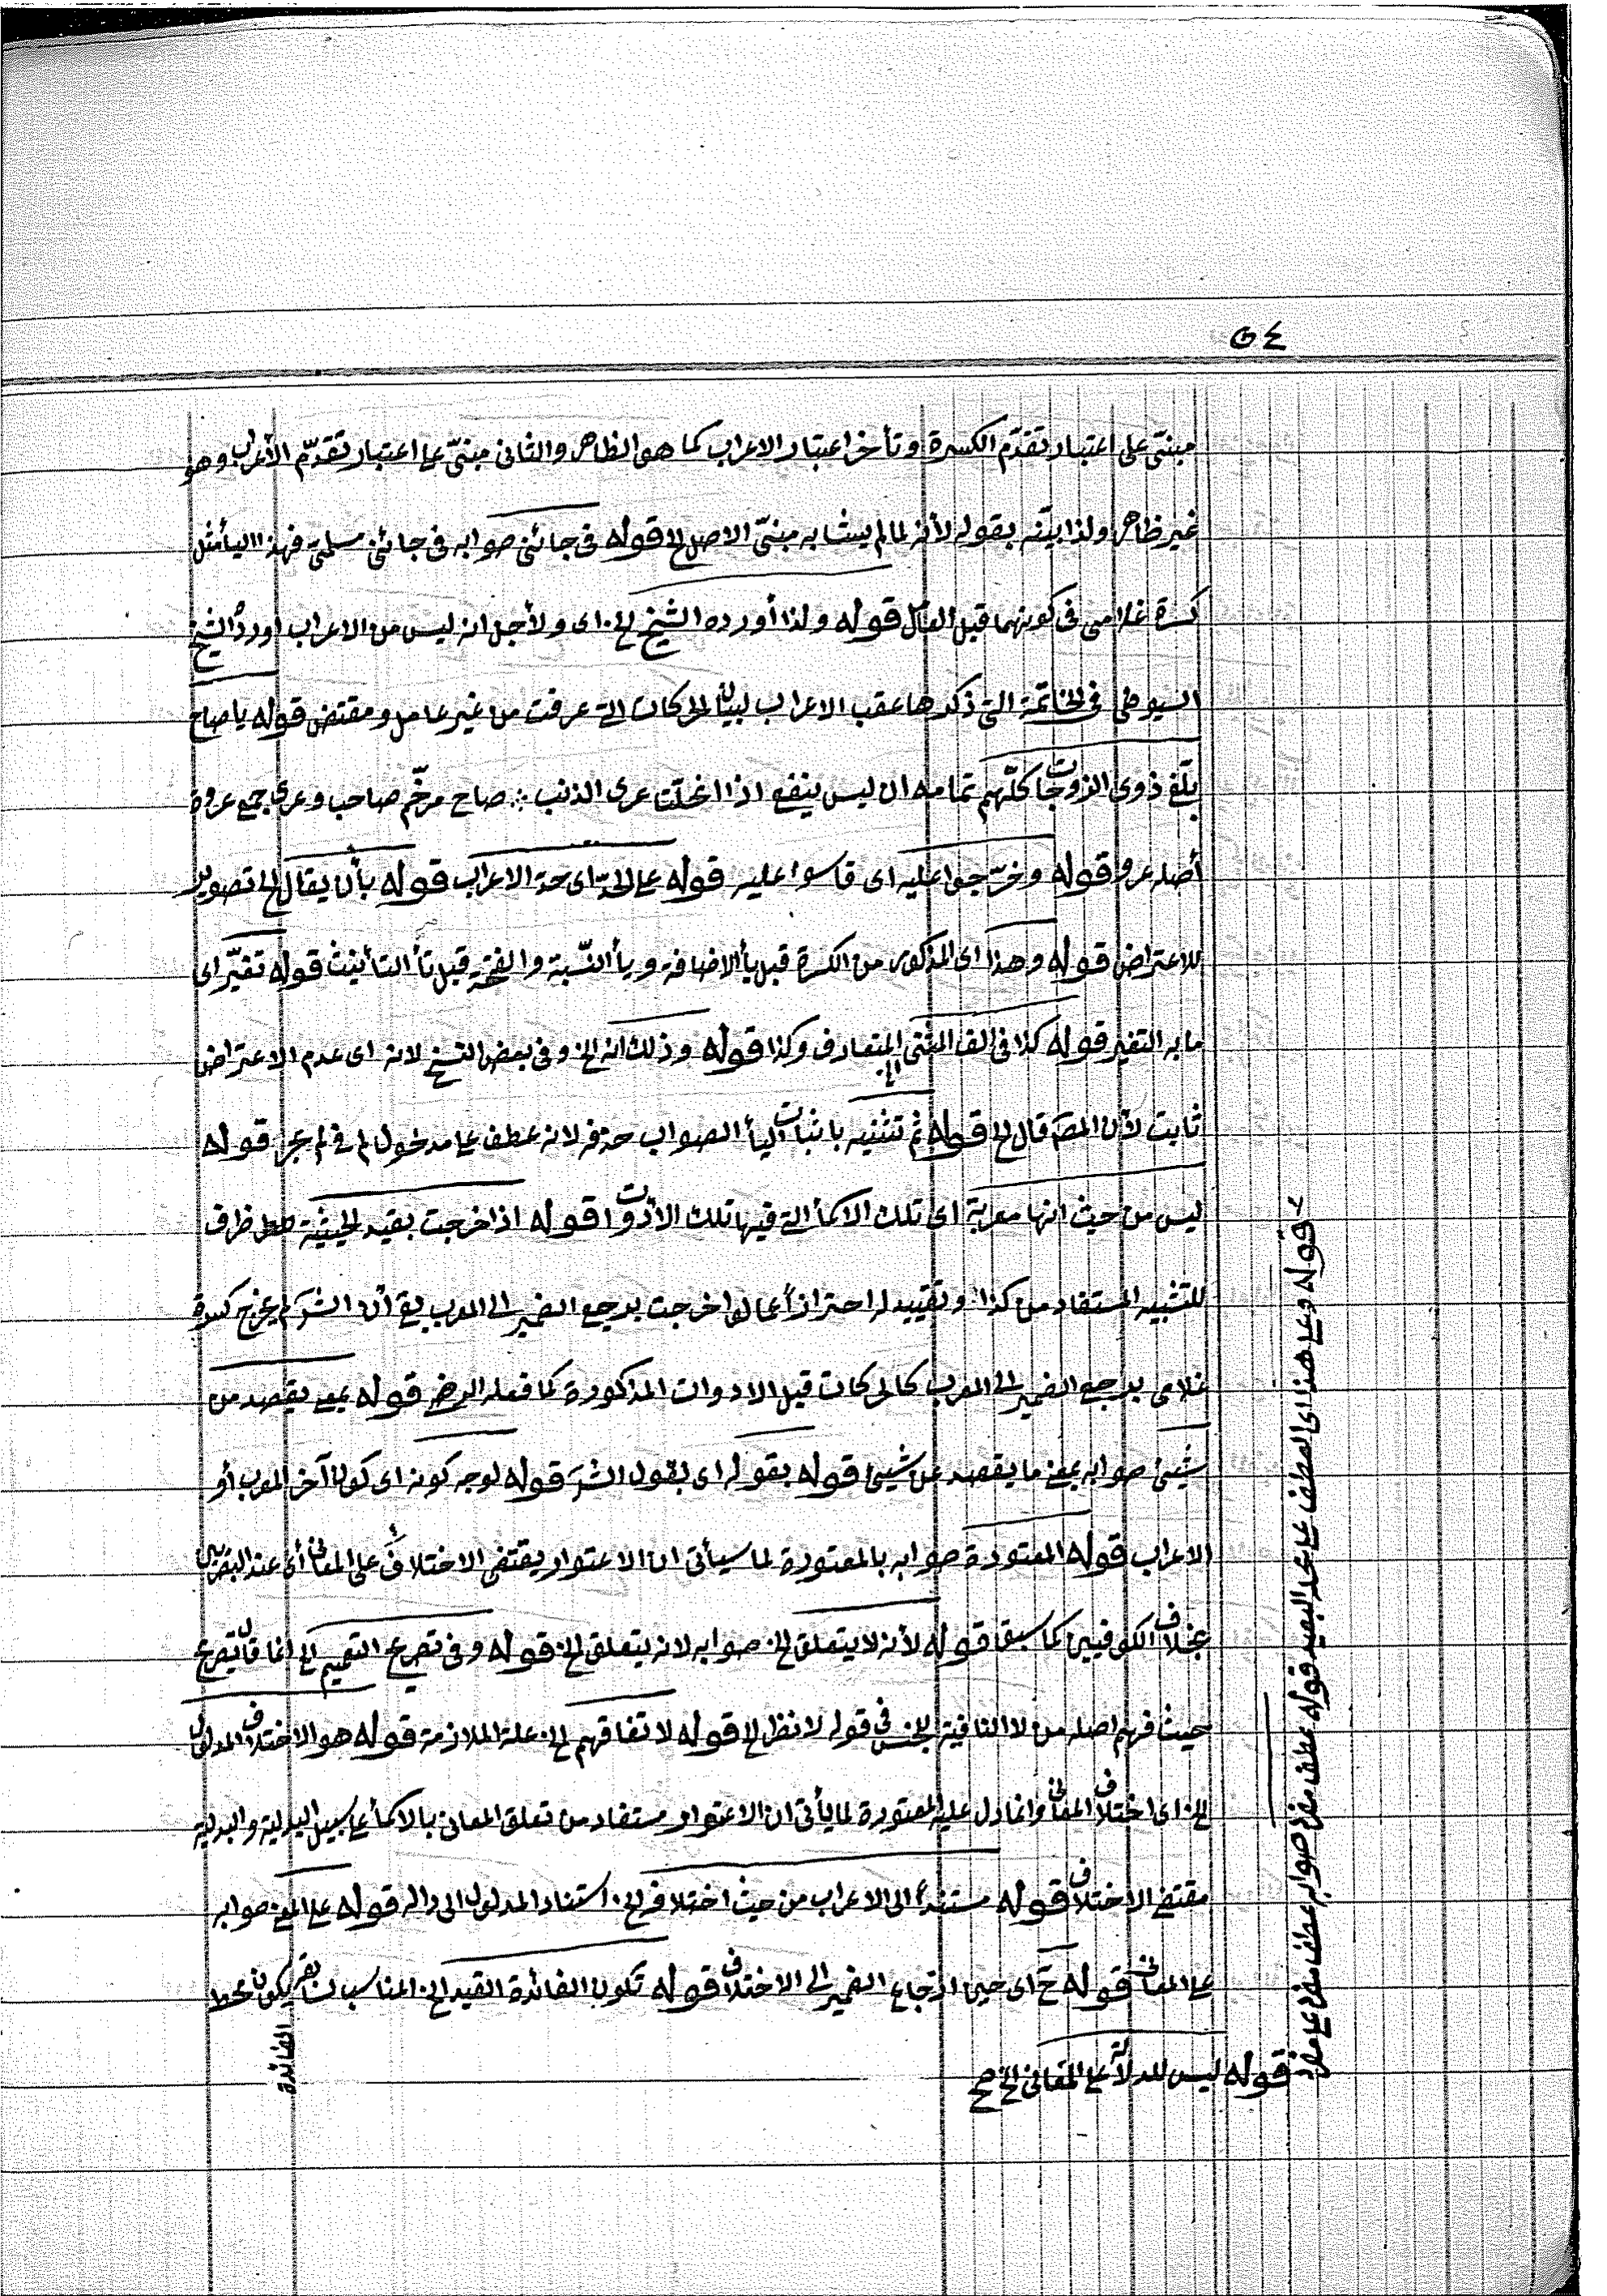 ٥٤
مبنيّ على اعتبار تقدّم الكسرة وتأخر اعتبار الاعراب كما هو الظاهر والثانى مبنيّ على اعتبار تقدّم الأعراب وهو
غير ظاهر ولذا بيّنه بقوله لأنه لما لم يشابه مبنىّ الاصل الخ قوله فى جائنى صوابه فى جائنى سلمى فهذا اليأ مثل
كسرة غلامى فى كونهما قبل العامل قوله ولذا أورده الشيخ الخ اى ولأجل انه ليس من الاعراب أورده الشيخ
السيوطى فى الخاتمة التى ذكرها عقب الاعراب لبيان الحركات التى عرفت من غير عامل ومقتض قوله يا صاح
بلّغ ذوى الزوجات كلّهم تمامه ان ليس ينفع اذا انحلّت عرى الذنب ∴ صاح مرخّم صاحب وعرى جمع عروة
أصله عرو قوله وخرّجوا عليه اى قاسوا عليه قوله على الحدّ اى حدّ الاعراب قوله بأن يقال الخ تصوير
للاعتراض قوله وهذا اى المذكور من الكسرة قبل يأ الاضافة ويأ النّسبة والفتحة قبل تأ التأنيث قوله تغيّر اى
ما به التغير قوله كذا فى الف المثنى الخ المتعارف وكذا قوله وذلك انه الخ وفى بعض النسخ لانه اى عدم الاعتراض
ثابت لأن المصَ قال الخ قوله ثم تثنيه باثبات اليأ الصواب حذفه لانه عطف على مدخول لم فى لم يجز قوله
ليس من حيث انها معربة اى تلك الاسمأ التى فيها تلك الأدوات قوله اذا خرجت بقيد الحيثية ظرف
للتشبيه المستفاد من كذا وتقييد له احترازاً عما لو اخرجت برجع الضمير الى المعرب يع أن الشرَ لم يخرج كسرة
غلامى برجع الضمير الى المعرب كالحركات قبل الادوات المذكورة كما فعله الرضى قوله بمعنى يقصد من
شيئ صوابه بمعنى ما يقصد عن شيئ قوله بقوله اى بقول الشرَ قوله لوجه كونه اى كون آخر المعرب أو
الاعراب قوله المعتورة صوابه بالمعتورة لما سيأتى ان الاعتوار يقتضى الاختلاف على المعانى أى عند البصريين
بخلاف الكوفيين كما سبق قوله لأنه لا يتعلق الخ صوابه لانه يتعلق الخ قوله وفى تصريح التعميم الخ انما قال تصريح
حيث فهم اصله من لا النافية للجنس فى قوله لا نظر الخ قوله لاتفاقهم الخ علة الملازمة قوله هو الاختلاف المدلول
الخ اى اختلاف المعانى وانما دل عليه المعتورة لما يأتى ان الاعتوار مستفاد من تعلق المعانى بالاسمأ على سبيل البدلية والبدلية
مقتضى الاختلاف قوله مستنداً الى الاعراب من حيث اختلافه الخ استناد المدلول الى داله قوله على المعنى صوابه
على المعانى قوله ح اى حين ارتجاع الضمير الى الاختلاف قوله تكون الفائدة القيد الخ المناسب يكون محط
الفائدة
قوله ليس للدلالة على المعانى الخ صح
قوله وعلى هذا اى العطف على محله البعيد قوله عطف مفرد صوابه عطف مفرد على مفرد